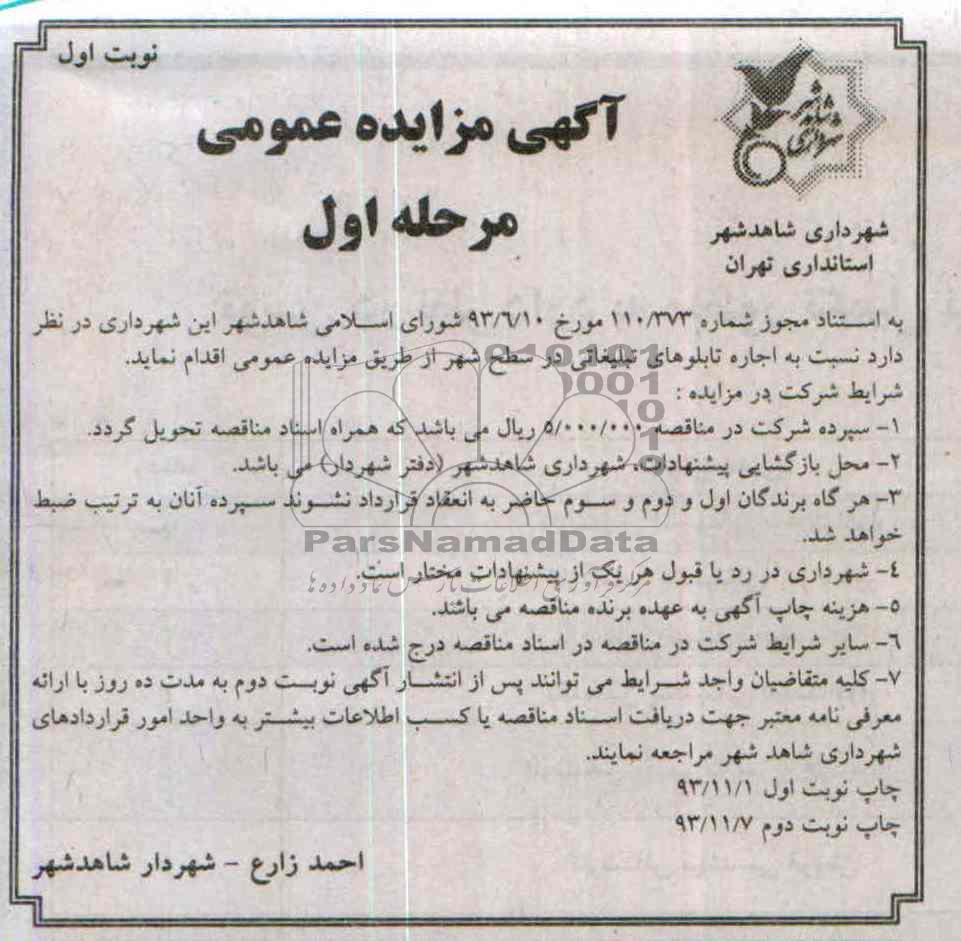 نوبت اول
آگهی مزایده عمومی
مرحله اول
شهرداری شاهدشهر
شهرداری شاهدشهر
استانداری تهران
به استناد مجوز شماره ۱۱۰/۳۷۳ مورخ ۹۳/۶/۱۰ شورای اسلامی شاهدشهر این شهرداری در نظر
دارد نسبت به اجاره تابلوهای تبلیغاتی در سطح شهر از طریق مزایده عمومی اقدام نماید.
شرایط شرکت در مزایده :
۱- سپرده شرکت در مناقصه ۵/۰۰۰/۰۰۰ ریال می باشد که همراه اسناد مناقصه تحویل گردد.
۲- محل بازگشایی پیشنهادات، شهرداری شاهدشهر (دفتر شهردار) می باشد.
۳- هر گاه برندگان اول و دوم و سوم حاضر به انعقاد قرارداد نشوند سپرده آنان به ترتیب ضبط
خواهد شد.
ParsNamadData
۴- شهرداری در رد یا قبول هر یک از پیشنهادات مختار است.
۵- هزینه چاپ آگهی به عهده برنده مناقصه می باشند.
۶- سایر شرایط شرکت در مناقصه در اسناد مناقصه درج شده است.
۷- کلیه متقاضیان واجد شرایط می توانند پس از انتشار آگهی نوبت دوم به مدت ده روز با ارائه
معرفی نامه معتبر جهت دریافت اسناد مناقصه یا کسب اطلاعات بیشتر به واحد امور قراردادهای
شهرداری شاهد شهر مراجعه نمایند.
چاپ نوبت اول ۹۳/۱۱/۱
چاپ نوبت دوم ۹۳/۱۱/۷
احمد زارع - شهردار شاهدشهر